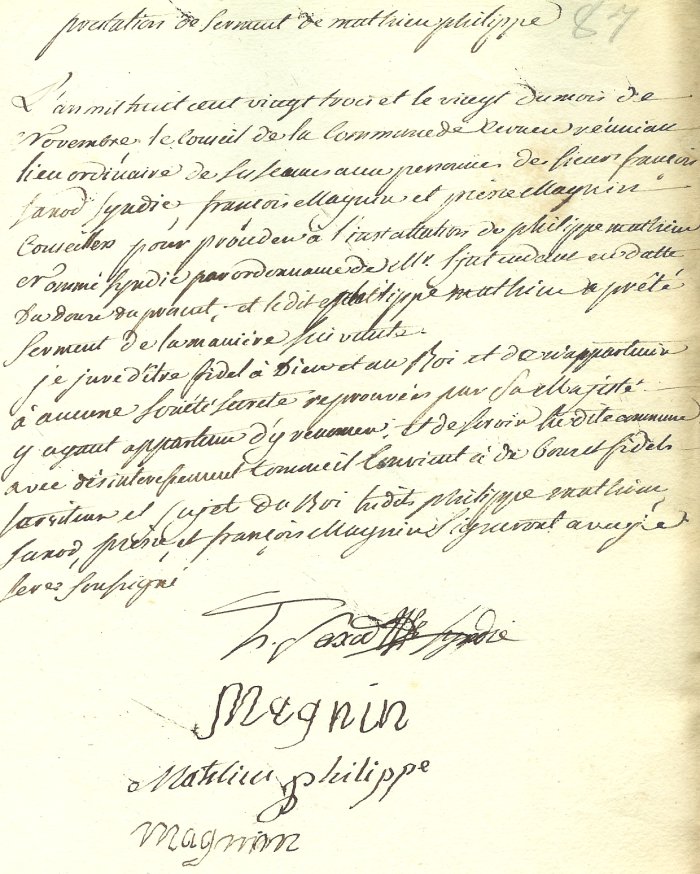 prestation de serment de mathieu philippe 87
L'an mil huit cent vingt trois et le vingt du mois de
Novembre le Conseil de la Commune de réuni au
lieu ordinaire de ses séances aux personnes des sieurs françois
Sanod Syndic françois Magnin et pierre Magnin
Conseillers pour procéder à l'installation de philippe mathieu
Nommé Syndic par ordonnance de Mr l'intendant en datte
du douze du procut, et ledit philippe mathieu a prêté
Serment de la manière suivante.
je jure d'être fidel à Dieu et au Roi et de n'appartenir
à aucune Société Secrete reprouvées par Sa Majesté
y ayant appartenu d'y renoncer, et de servir la dite commune
avec désinteressement Comme il Convient à de bons et fidels
serviteur et sujet du Roi lesdits philippe mathieu
Sanod, pierre et françois Magnin signeront avec le
Secre Soussigné
Syndic
Magnin
Mathieu philippe
magnin